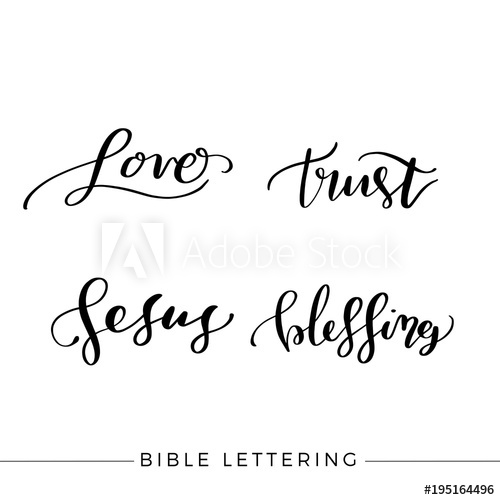 Love trust
Adobe Stock
Jesus blessing
BIBLE LETTERING
#195164496